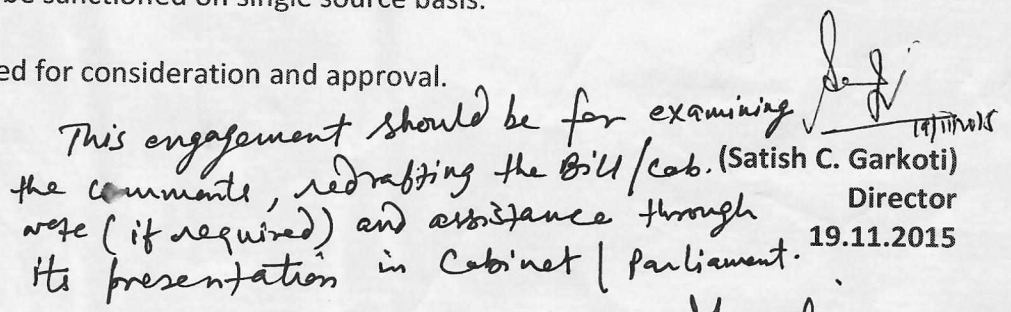 be sanctioned on single source basis.
ed for consideration and approval.
This engagement should be for examining
the comments, redrafting the Bill/Cab.
note (if required) and assistance through
its presentation in Cabinet / Parliament.
19/11/2015
(Satish C. Garkoti)
Director
19.11.2015